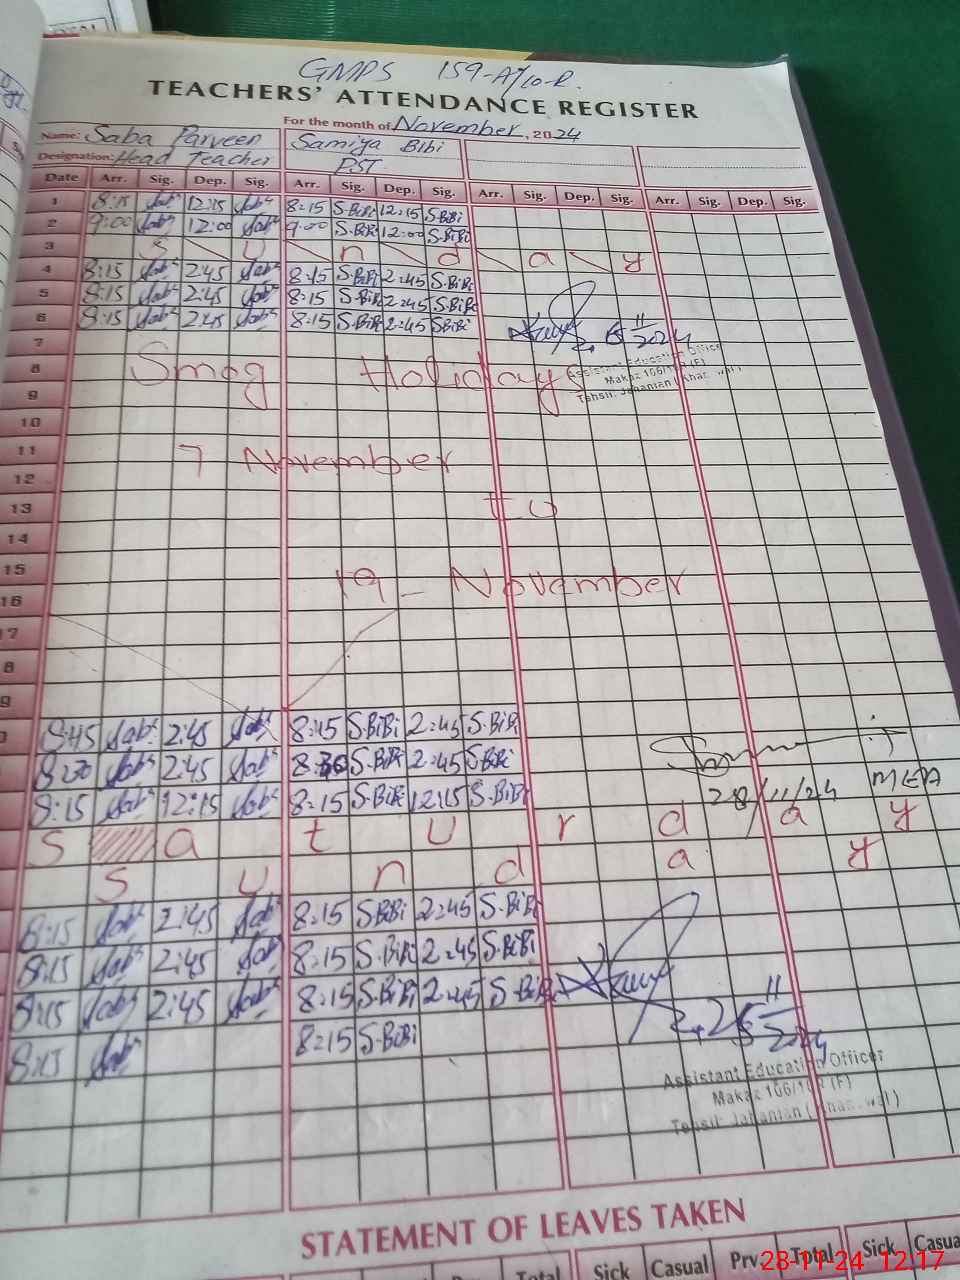 GMPS 159-A/10-R.
TEACHERS' ATTENDANCE REGISTER
For the month of November, 2024
Name: Saba Parveen Samiya Bibi
Designation: Head Teacher PST
Date Arr. Sig. Dep. Sig. Arr. Sig. Dep. Sig. Arr. Sig. Dep. Sig. Arr. Sig. Dep. Sig.
1 8:15 Sab 12:15 Sab 8:15 S.BiBi 12:15 S.BiBi
2 9:00 Sab 12:00 Sab 9:00 S.BiBi 12:00 S.BiBi
3 S u n d a y
4 8:15 Sab 2:45 Sab 8:15 S.BiBi 2:45 S.BiBi
5 8:15 Sab 2:45 Sab 8:15 S.BiBi 2:45 S.BiBi
6 8:15 Sab 2:45 Sab 8:15 S.BiBi 2:45 S.BiBi
6 11 2024
7
Assistant Education Officer
8 Smog Holidays
Makaz 166/10R (F)
Tehsil: Jahanian
9
10
11 7 November
12
13 to
14
15 19- November
16
7
8
9
8:45 Sab 2:45 Sab 8:45 S.BiBi 2:45 S.BiBi
8:30 Sab 2:45 Sab 8:30 S.BiBi 2:45 S.BiBi
8:15 Sab 12:15 Sab 8:15 S.BiBi 12:15 S.BiBi
28/11/24 MEA
S a t u r d a y
S u n d a y
8:15 Sab 2:45 Sab 8:15 S.BiBi 2:45 S.BiBi
8:15 Sab 2:45 Sab 8:15 S.BiBi 2:45 S.BiBi
8:15 Sab 2:45 Sab 8:15 S.BiBi 2:45 S.BiBi
8:15 Sab 8:15 S.BiBi
11 2024
Assistant Education Officer
Makaz 166/10R (F)
Tehsil: Jahanian
STATEMENT OF LEAVES TAKEN
Total Sick Casual Prv. Total Sick Casual
28-11-24 12:17